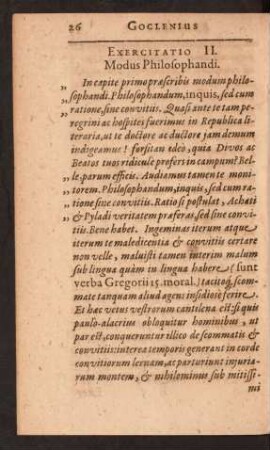 26 GOCLENIUS
EXERCITATIO II.
Modus Philosophandi.
„ In capite primo præscribis modum philo-
„ sophandi. Philosophandum, inquis, sed cum
„ ratione, sine convitiis. Quasi ante te tam pe-
regrini ac hospites fuerimus in Republica li-
teraria, ut te doctore ac ductore jam demum
indigeamus! fursitan ideo, quia Divos ac
Beatos tuos ridicule profers in campum? Bel-
„ le, parum efficis. Audiamus tamen te moni-
„ torem. Philosophandum, inquis, sed cum ra-
„ tione sine convitiis. Ratio si postulat, Achati
& Pyladi veritatem præferas, sed sine convi-
tiis. Bene habet. Ingeminas iterum atque
iterum te maledicentia & convitiis certare
non velle, maluisti tamen interim malum
sub lingua quàm in lingua habere (sunt
verba Gregorii 15. moral.) tacitoq; scom-
mate tanquam aliud agens insidiose ferire.
Et hæc vetus vestrorum cantilena est: si quis
paulo alacrius obloquitur hominibus, ut
par est, conqueruntur illico de scommatis &
convitiis: interea temporis generant in corde
convitiorum lernam, ac parturiunt injuria-
rum montem, & nihilominus sub mitissi-
mi